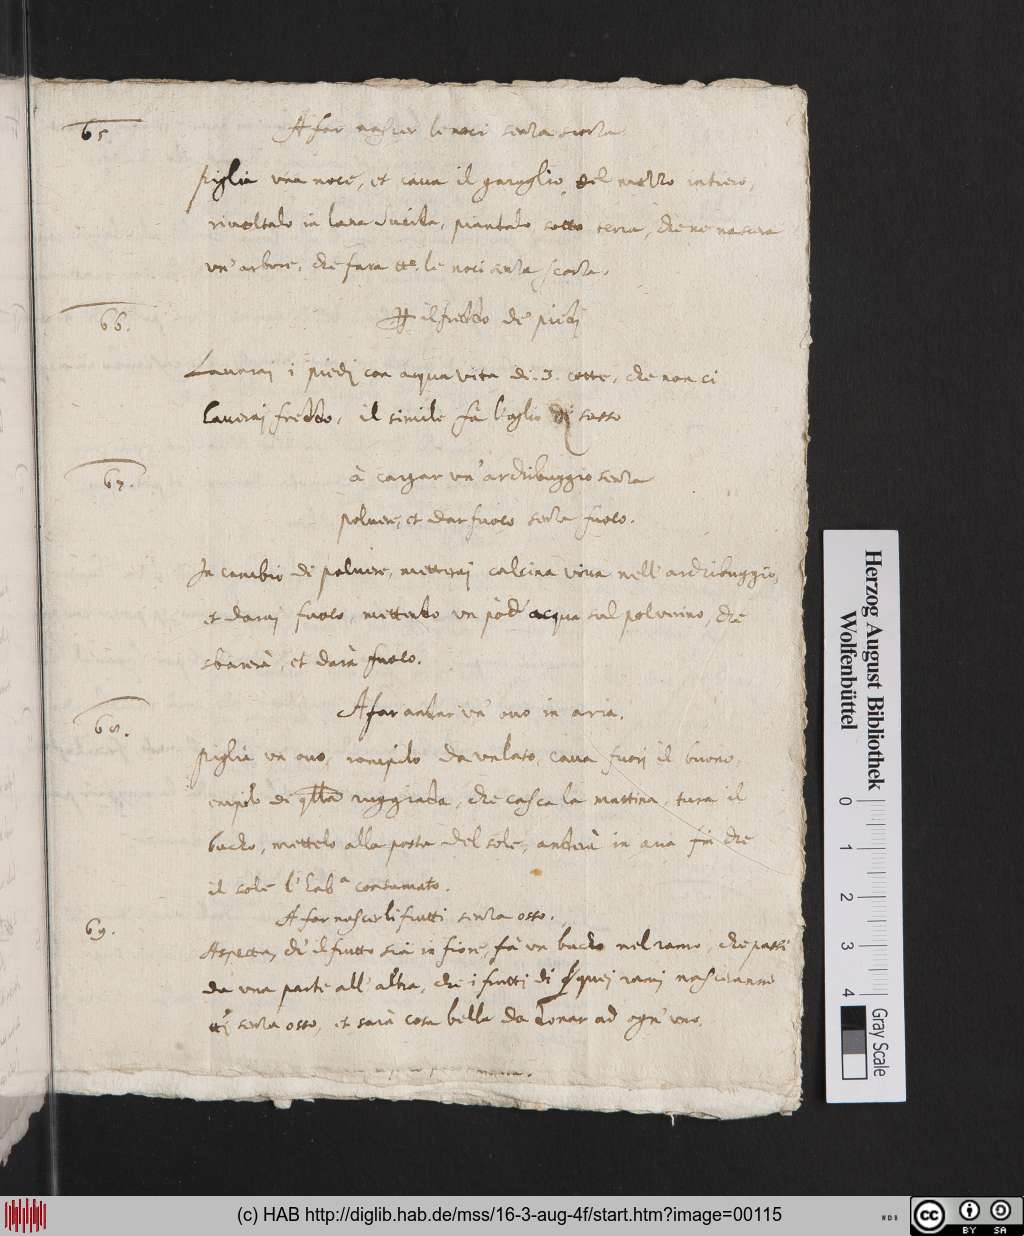 65 A far nascer le noci senza scorza.
Piglia una noce, et caua il garuglio del mezzo intiero,
riuoltalo in lana sucida, piantalo sotto terra, che ne nascera
un' arbore, che fara tte. le noci senza scorza.
66. il freddo de' piedi
Lauarai i piedi con acqua vita di .3. cotte, che non ci
hauerai freddo, il simile fà l'oglio di sasso
67. à cargar un' archibuggio senza
poluere, et dar fuoco senza fuoco.
In cambio di poluere, metterai calcina viua nell' archibuggio,
et darai fuoco, mettendo un pòd' acqua sul poluerino, che
sbarerà, et darà fuoco.
68. A far andar un' ouo in aria.
Piglia un ouo, rompilo da un lato, caua fuori il buono,
empilo di qlla ruggiada, che casca la mattina, tura il
bucho, mettelo alla posta del sole, anderà in aria fin che
il sole l' hab.a consumato.
69. A far nascer li frutti senza osso.
Aspetta, ch' il frutto sia in fiore, fà un bucho nel ramo, che passi
da una parte all' altra, che i frutti di quei rami nasceranno
tti senza osso, et sarà cosa bella da donar ad ogn' uno.
Herzog August Bibliothek
Wolfenbüttel
0 1 2 3 4
Gray Scale
(c) HAB http://diglib.hab.de/mss/16-3-aug-4f/start.htm?image=00115
cc BY SA